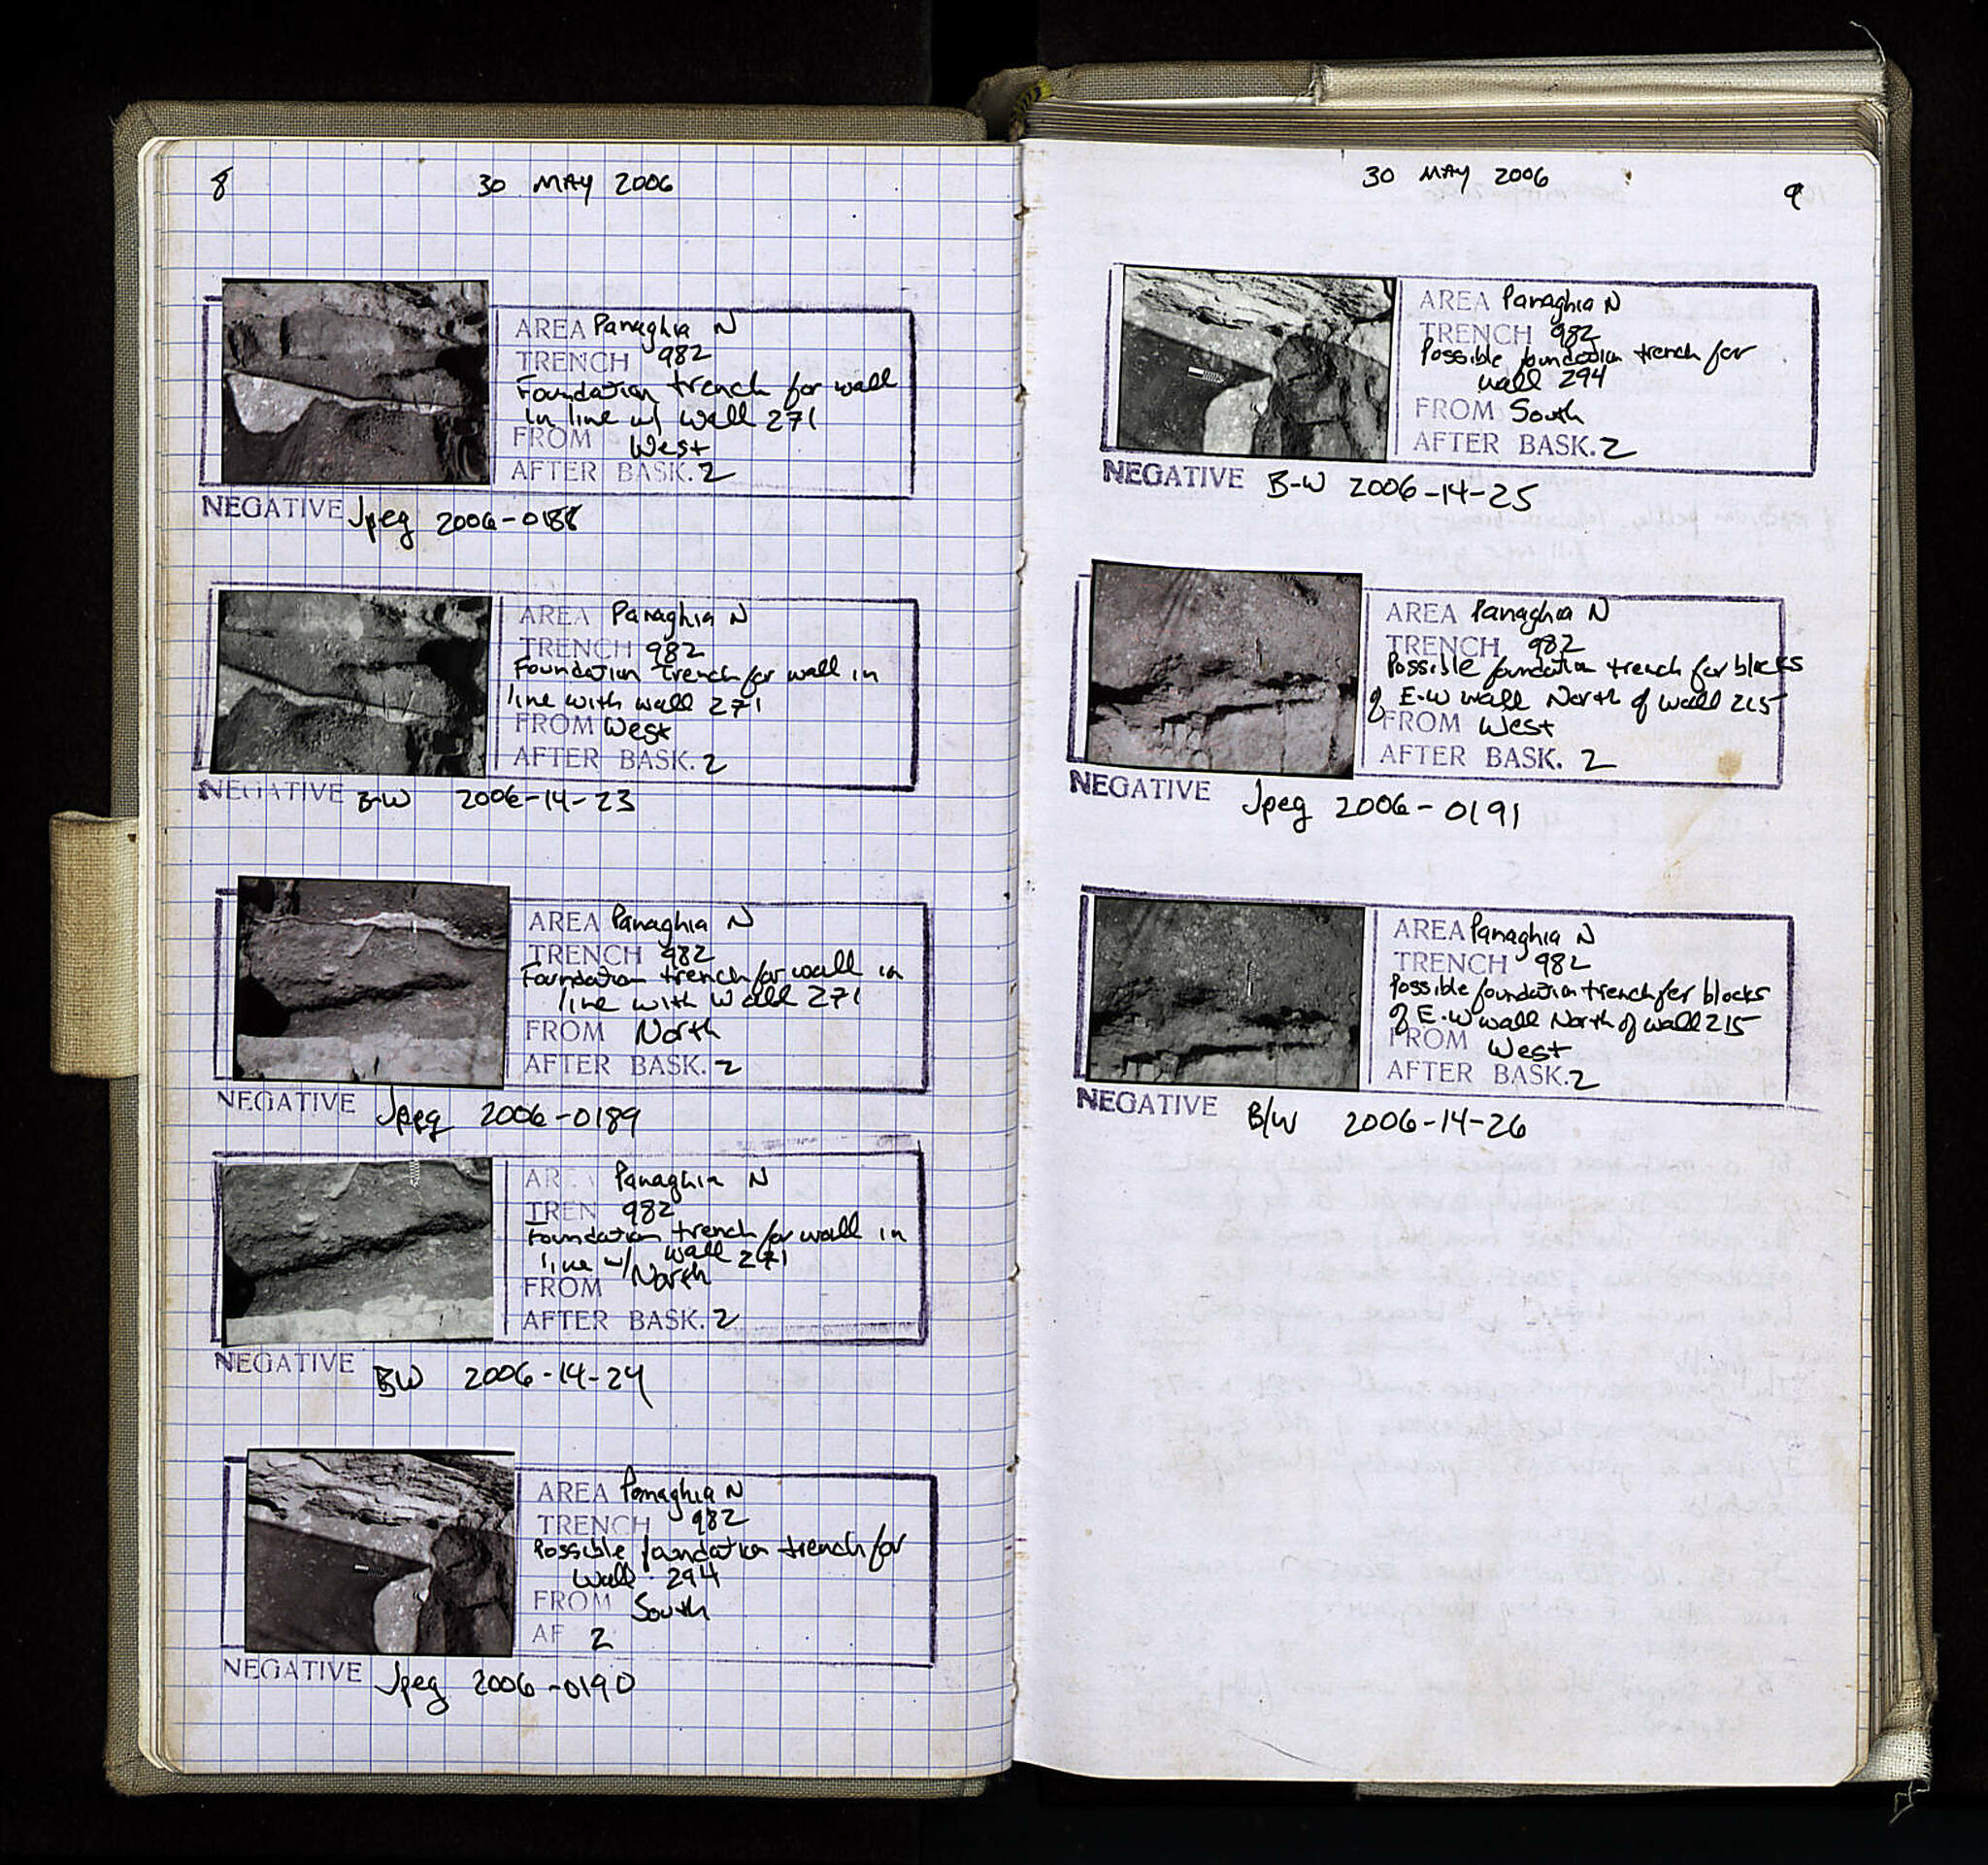 8
30 MAY 2006
AREA Panaghia N
TRENCH 982
Foundation trench for wall
in line w/ wall 271
FROM West
AFTER BASK. 2
NEGATIVE Jpeg 2006-0188
AREA Panaghia N
TRENCH 982
Foundation trench for wall in
line with wall 271
FROM West
AFTER BASK. 2
NEGATIVE B-W 2006-14-23
AREA Panaghia N
TRENCH 982
Foundation trench for wall in
line with wall 271
FROM North
AFTER BASK. 2
NEGATIVE Jpeg 2006-0189
AREA Panaghia N
TREN 982
Foundation trench for wall in
line w/ wall 271
FROM North
AFTER BASK. 2
NEGATIVE BW 2006-14-24
AREA Panaghia N
TRENCH 982
Possible foundation trench for
wall 294
FROM South
AF 2
NEGATIVE Jpeg 2006-0190
30 MAY 2006
9
AREA Panaghia N
TRENCH 982
Possible foundation trench for
wall 294
FROM South
AFTER BASK. 2
NEGATIVE B-W 2006-14-25
AREA Panaghia N
TRENCH 982
Possible foundation trench for blocks
of E-W wall North of wall 215
FROM West
AFTER BASK. 2
NEGATIVE Jpeg 2006-0191
AREA Panaghia N
TRENCH 982
Possible foundation trench for blocks
of E-W wall North of wall 215
FROM West
AFTER BASK. 2
NEGATIVE B/W 2006-14-26